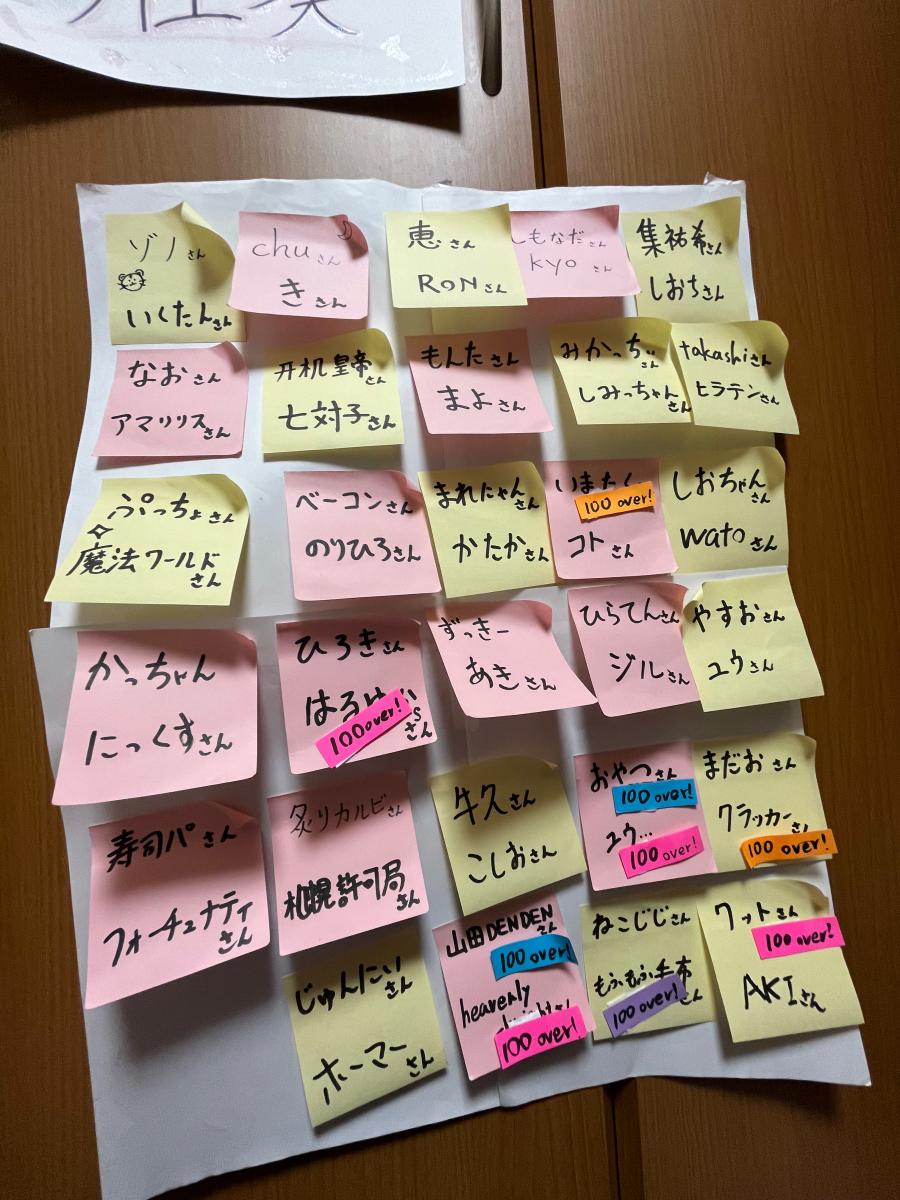 ゾノさん
いくたんさん
chuさん
きさん
恵さん
RONさん
しもなださん
kyoさん
集祐希さん
しおちさん
なおさん
アマリリスさん
开机皇帝さん
七対子さん
もんたさん
まよさん
みかっち
しみっちゃんさん
takashiさん
ヒラテンさん
ぷっちょさん
魔法ワールド
さん
ベーコンさん
のりひろさん
まれたゃんさん
かたかさん
いまたく
100 over!
コトさん
しおちゃん
さん
watoさん
かっちゃん
にっくすさん
ひろきさん
はる
100 over!
さん
ずっきー
あきさん
ひらてんさん
ジルさん
やすおさん
ユウさん
寿司パさん
フォーチュナティ
さん
炙りカルビさん
札幌許可局
さん
牛久さん
こしおさん
おやつさん
100 over!
ユウ…
100 over!
まだおさん
クラッカーさん
100 over!
じゅんたいさん
ホーマーさん
山田DENDEN
さん
100 over!
heavenly
100 over!
ねこじじさん
もふもふ毛布
さん
100 over!
ワットさん
100 over!
AKIさん